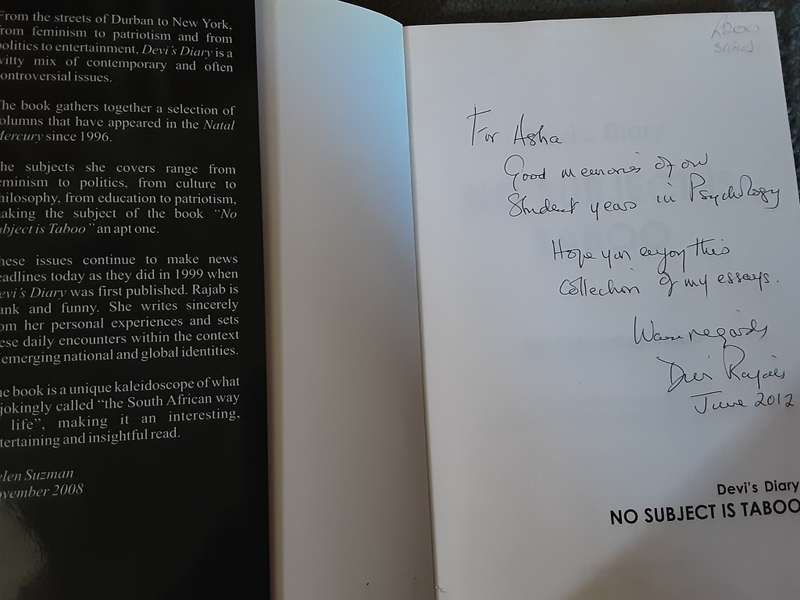 From the streets of Durban to New York,
from feminism to patriotism and from
politics to entertainment, Devi's Diary is a
witty mix of contemporary and often
controversial issues.
The book gathers together a selection of
columns that have appeared in the Natal
Mercury since 1996.
The subjects she covers range from
feminism to politics, from culture to
philosophy, from education to patriotism,
making the subject of the book "No
Subject is Taboo" an apt one.
These issues continue to make news
headlines today as they did in 1999 when
Devi's Diary was first published. Rajab is
frank and funny. She writes sincerely
from her personal experiences and sets
these daily encounters within the context
emerging national and global identities.
The book is a unique kaleidoscope of what
jokingly called "the South African way
life", making it an interesting,
entertaining and insightful read.
Helen Suzman
November 2008
For Asha
Good memories of our
Student years in Psychology
Hope you enjoy this
Collection of my essays.
Warm regards
Devi Rajab
June 2012
Devi's Diary
NO SUBJECT IS TABOO